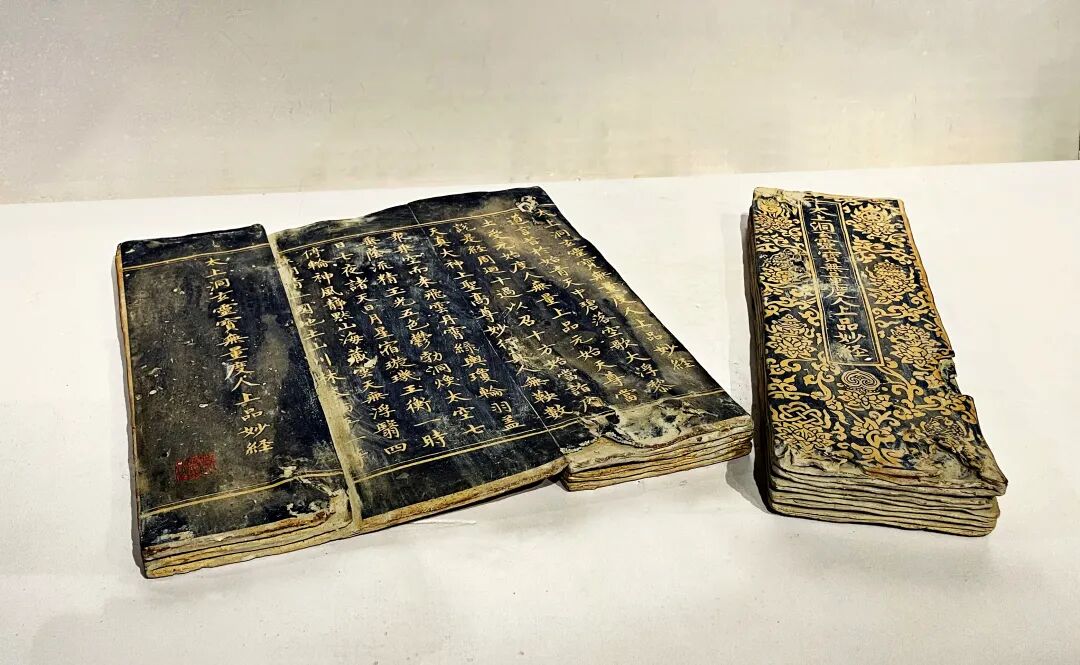 太上洞玄靈寶無量度人上品妙經
道言昔於始青天中碧落空歌大浮黎
土受元始度人無量上品元始天尊當
說是經周迴十過以召十方始當詣座
天真大神上聖高尊妙行真人無鞅數
衆乘空而來飛雲丹霄綠輿瓊輪羽蓋
垂蔭流精玉光五色鬱勃洞煥太空七
日七夜諸天日月星宿璇璣玉衡一時
停輪神風靜默山海藏雲天無浮翳四
清一國地土山川林
太上洞玄靈寶無量度人上品妙経
太上洞玄靈寶無量度人上品妙經